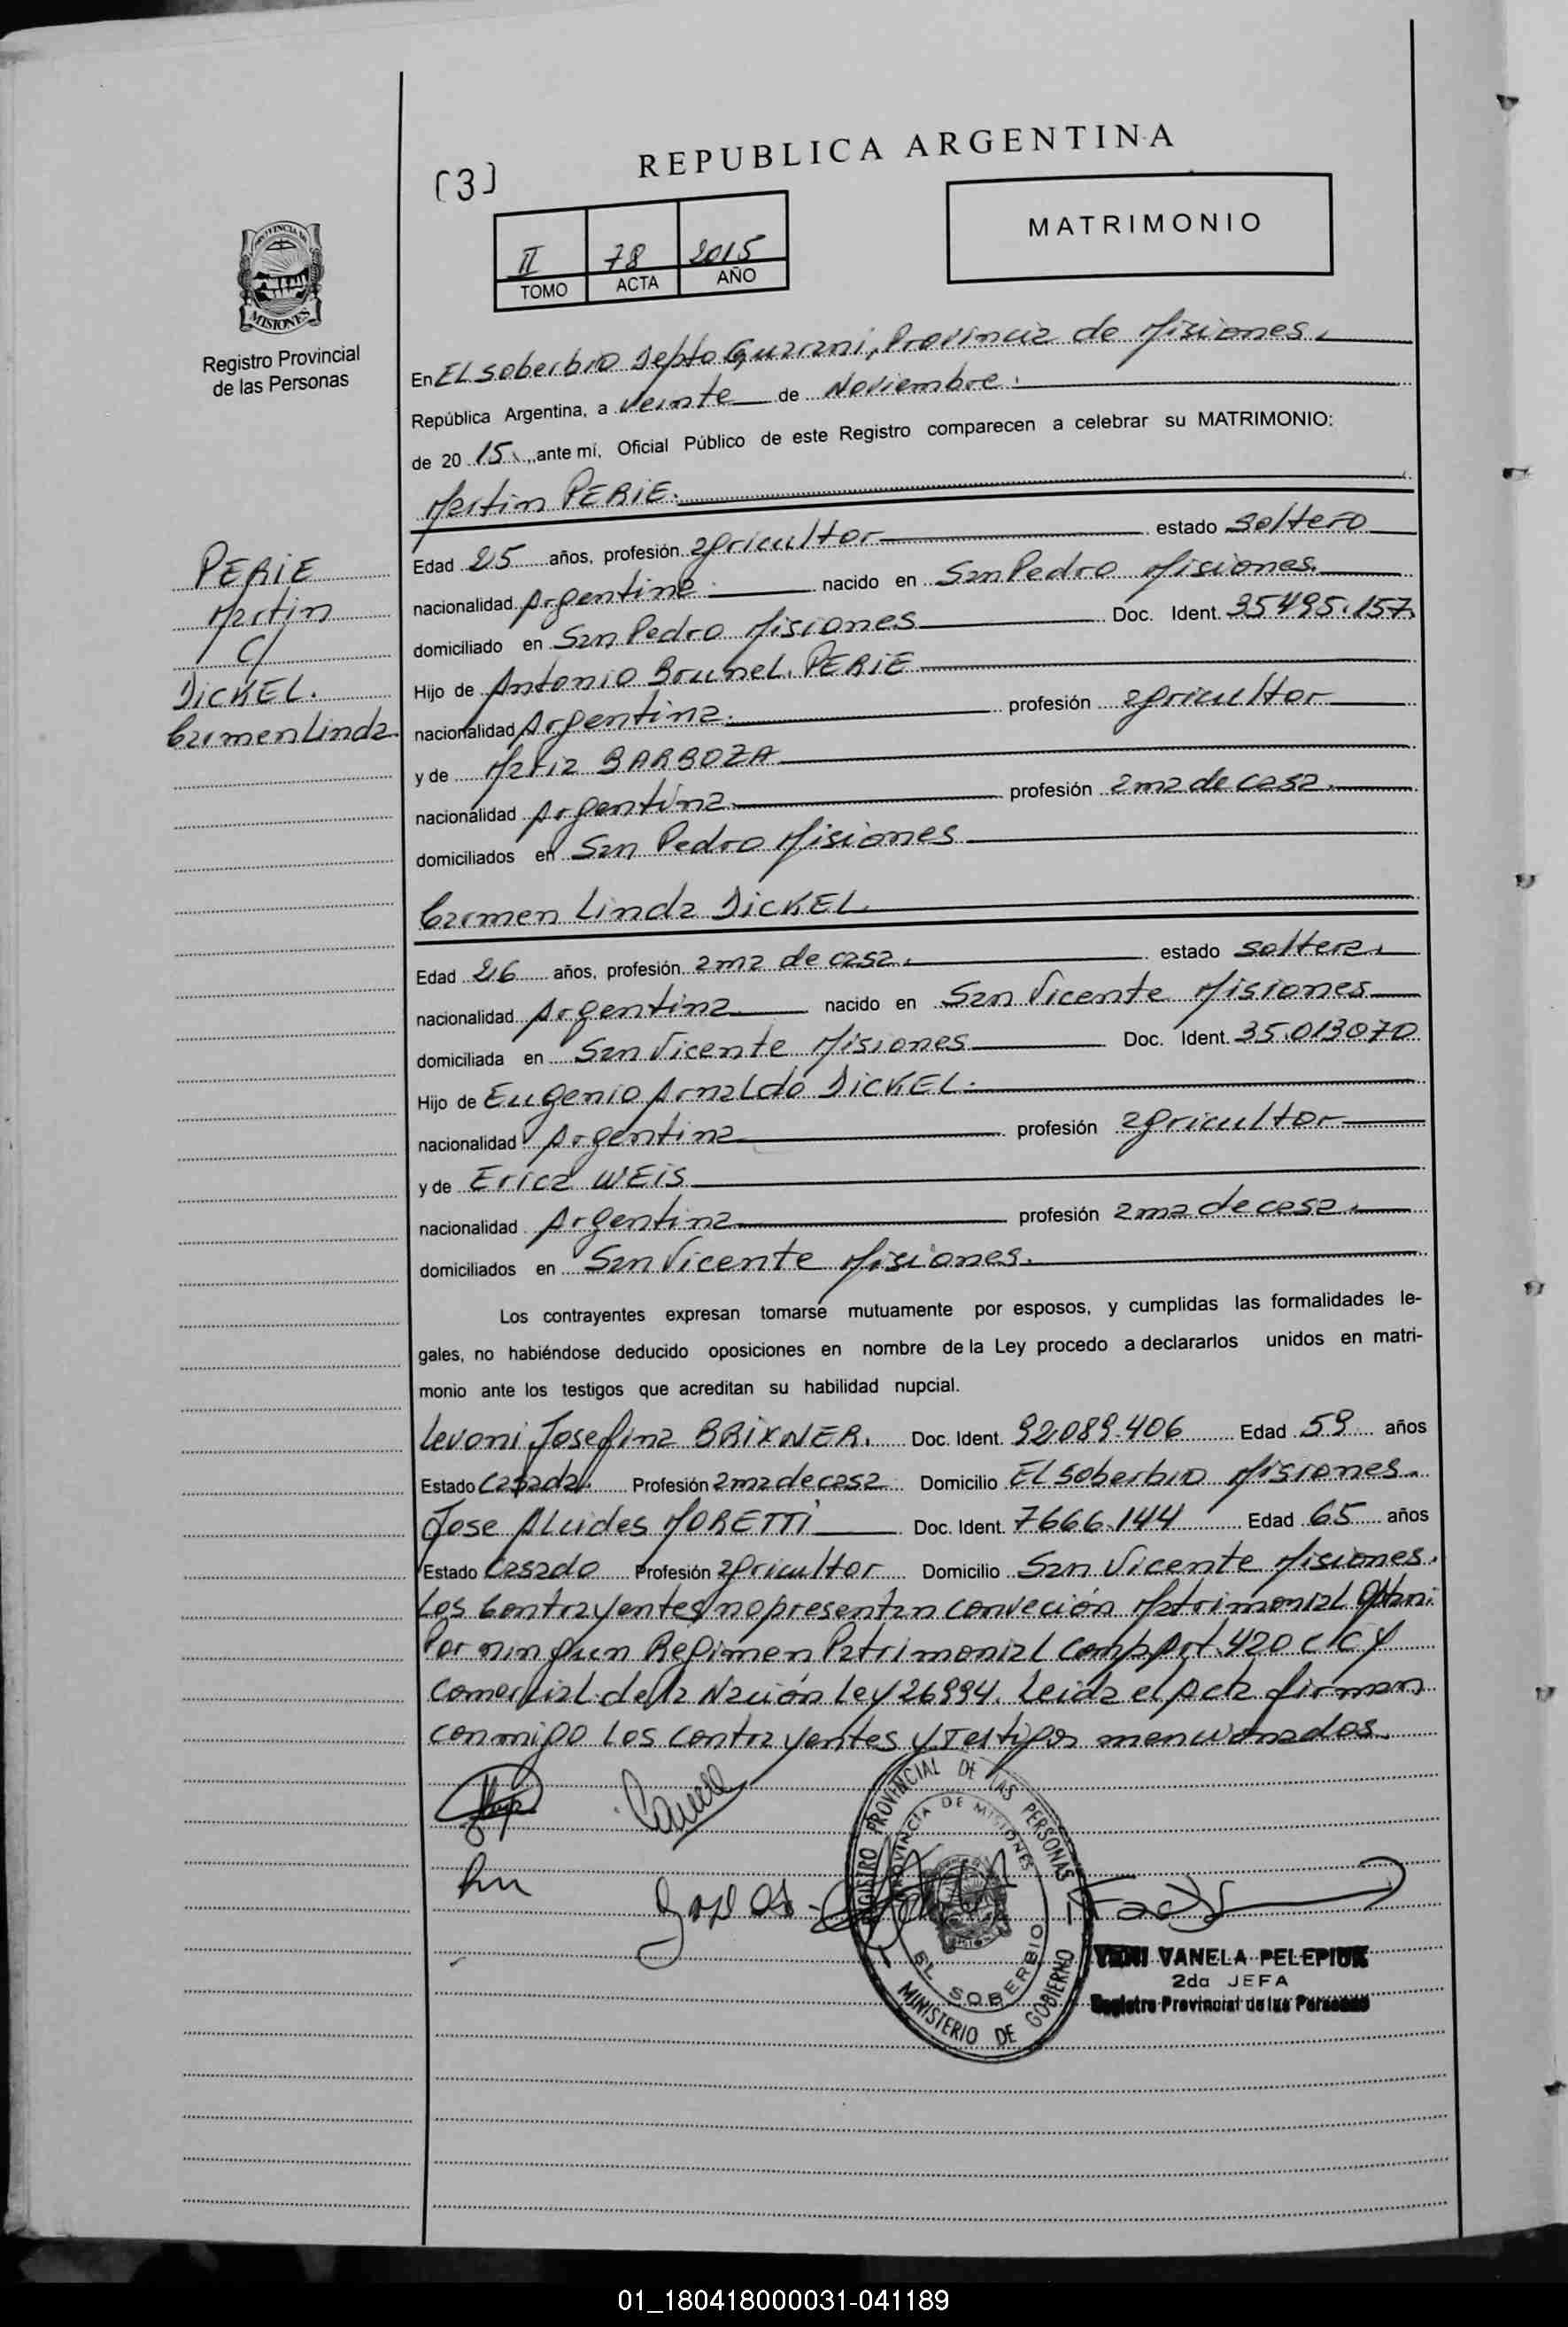 REPUBLICA ARGENTINA
(3)
MATRIMONIO
II 78 2015
TOMO ACTA AÑO
PROVINCIA DE
MISIONES
Registro Provincial
de las Personas
PERIE
Martin
C/
DICKEL.
Carmen Linda
En EL soberbio Depto Guarani, Provincia de Misiones.
República Argentina, a veinte de Noviembre.
de 20 15., ante mí, Oficial Público de este Registro comparecen a celebrar su MATRIMONIO:
Martin PERIE.
Edad 25 años, profesión agricultor estado soltero
nacionalidad Argentina. nacido en San Pedro Misiones.
domiciliado en San Pedro Misiones Doc. Ident. 35495.157.
Hijo de Antonio Brunel. PERIE
nacionalidad Argentina. profesión agricultor
y de Maria BARBOZA
nacionalidad Argentina. profesión ama de casa.
domiciliados en San Pedro Misiones
Carmen Linda DICKEL.
Edad 26 años, profesión ama de casa. estado soltera.
nacionalidad Argentina. nacido en San Vicente Misiones
domiciliada en San Vicente Misiones Doc. Ident. 35.013070
Hijo de Eugenio Arnaldo DICKEL.
nacionalidad Argentina profesión agricultor
y de Erica WEIS
nacionalidad Argentina profesión ama de casa.
domiciliados en San Vicente Misiones.
Los contrayentes expresan tomarse mutuamente por esposos, y cumplidas las formalidades le-
gales, no habiéndose deducido oposiciones en nombre de la Ley procedo a declararlos unidos en matri-
monio ante los testigos que acreditan su habilidad nupcial.
Levoni Josefina BRIXNER. Doc. Ident. 92089.406 Edad 59 años
Estado Casada. Profesión ama de casa Domicilio EL soberbio Misiones.
Jose ALcides MORETTI Doc. Ident. 7666.144 Edad 65 años
Estado Casado Profesión agricultor Domicilio San Vicente Misiones.
Los Contrayentes no presentan conveción Matrimonial
Por ningun Regimen Patrimonial Art. 420 C/C y
comercial de la Nación Ley 26994. Leida el Acta firman
conmigo Los contrayentes y Testigos mencionados.
REGISTRO PROVINCIAL DE LAS PERSONAS
PROVINCIA DE MISIONES
EL SOBERBIO
MINISTERIO DE GOBIERNO
VANELA PELEPIUK
2da JEFA
Registro Provincial de las Personas
01_180418000031-041189